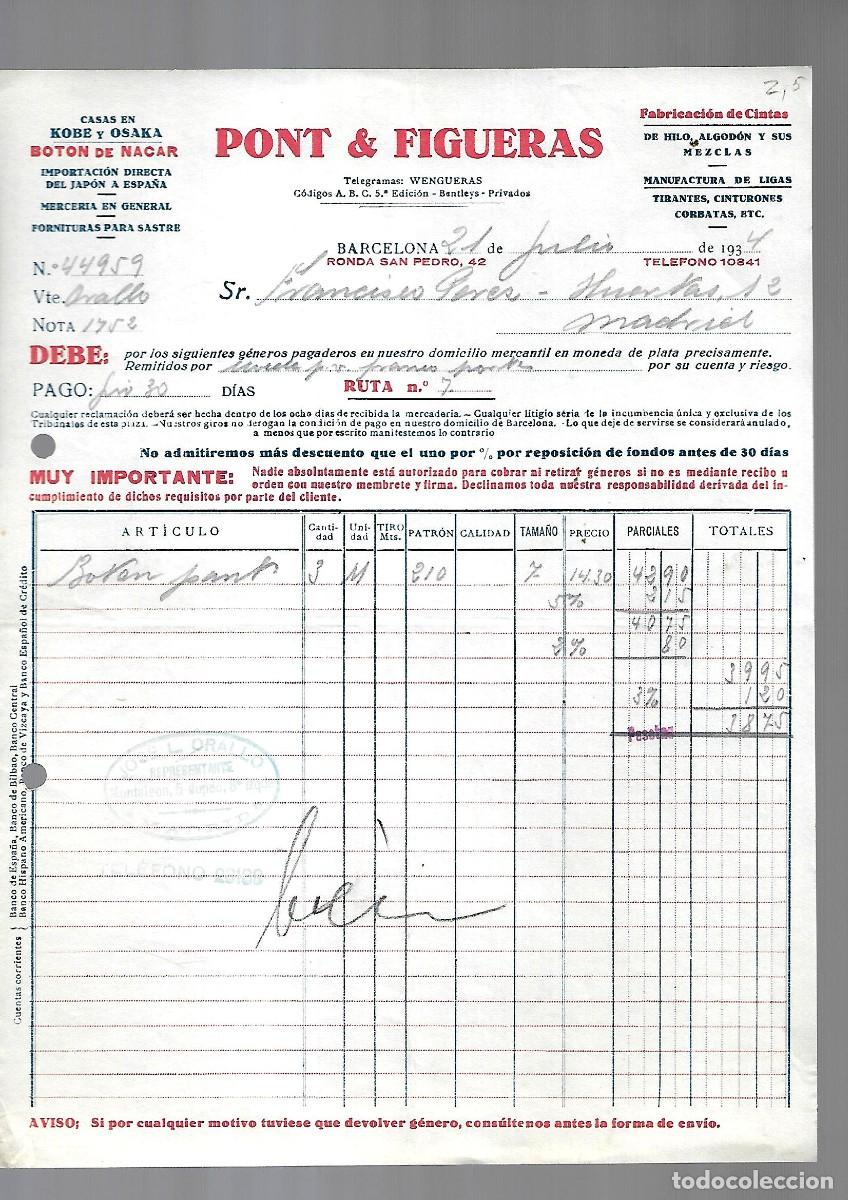 2,5
CASAS EN
KOBE Y OSAKA
BOTON DE NACAR
IMPORTACIÓN DIRECTA
DEL JAPÓN A ESPAÑA
MERCERIA EN GENERAL
FORNITURAS PARA SASTRE
PONT & FIGUERAS
Telegramas: WENGUERAS
Códigos A. B. C. 5.ª Edición - Bentleys - Privados
Fabricación de Cintas
DE HILO, ALGODÓN Y SUS
MEZCLAS
MANUFACTURA DE LIGAS
TIRANTES, CINTURONES
CORBATAS, ETC.
BARCELONA 21 de julio de 1934
RONDA SAN PEDRO, 42 TELEFONO 10841
N.º 44959
Vte. Orallo
NOTA 1752
Sr. Francisco Perez - Huertas, 12
Madrid
DEBE: por los siguientes géneros pagaderos en nuestro domicilio mercantil en moneda de plata precisamente.
Remitidos por por su cuenta y riesgo.
PAGO: 30 DÍAS RUTA n.º 7
Cualquier reclamación deberá ser hecha dentro de los ocho días de recibida la mercadería. — Cualquier litigio sería de la incumbencia única y exclusiva de los
Tribunales de esta plaza. — Nuestros giros no derogan la condición de pago en nuestro domicilio de Barcelona. - Lo que deje de servirse se considerará anulado,
a menos que por escrito manifestemos lo contrario
No admitiremos más descuento que el uno por % por reposición de fondos antes de 30 días
MUY IMPORTANTE: Nadie absolutamente está autorizado para cobrar ni retirar géneros si no es mediante recibo u
orden con nuestro membrete y firma. Declinamos toda nuestra responsabilidad derivada del in-
cumplimiento de dichos requisitos por parte del cliente.
ARTÍCULO Canti-dad Uni-dad TIRO Mts. PATRÓN CALIDAD TAMAÑO PRECIO PARCIALES TOTALES
Boton pant 3 M 210 7 14.30 4290
5% 215
4075
2% 80
3995
3% 120
Pesetas 3875
JOSÉ L. ORALLO
REPRESENTANTE
TELÉFONO
Cuentas corrientes
Banco de España, Banco de Bilbao, Banco Central
Banco Hispano Americano, Banco de Vizcaya y Banco Español de Crédito
AVISO; Si por cualquier motivo tuviese que devolver género, consúltenos antes la forma de envío.
todocoleccion